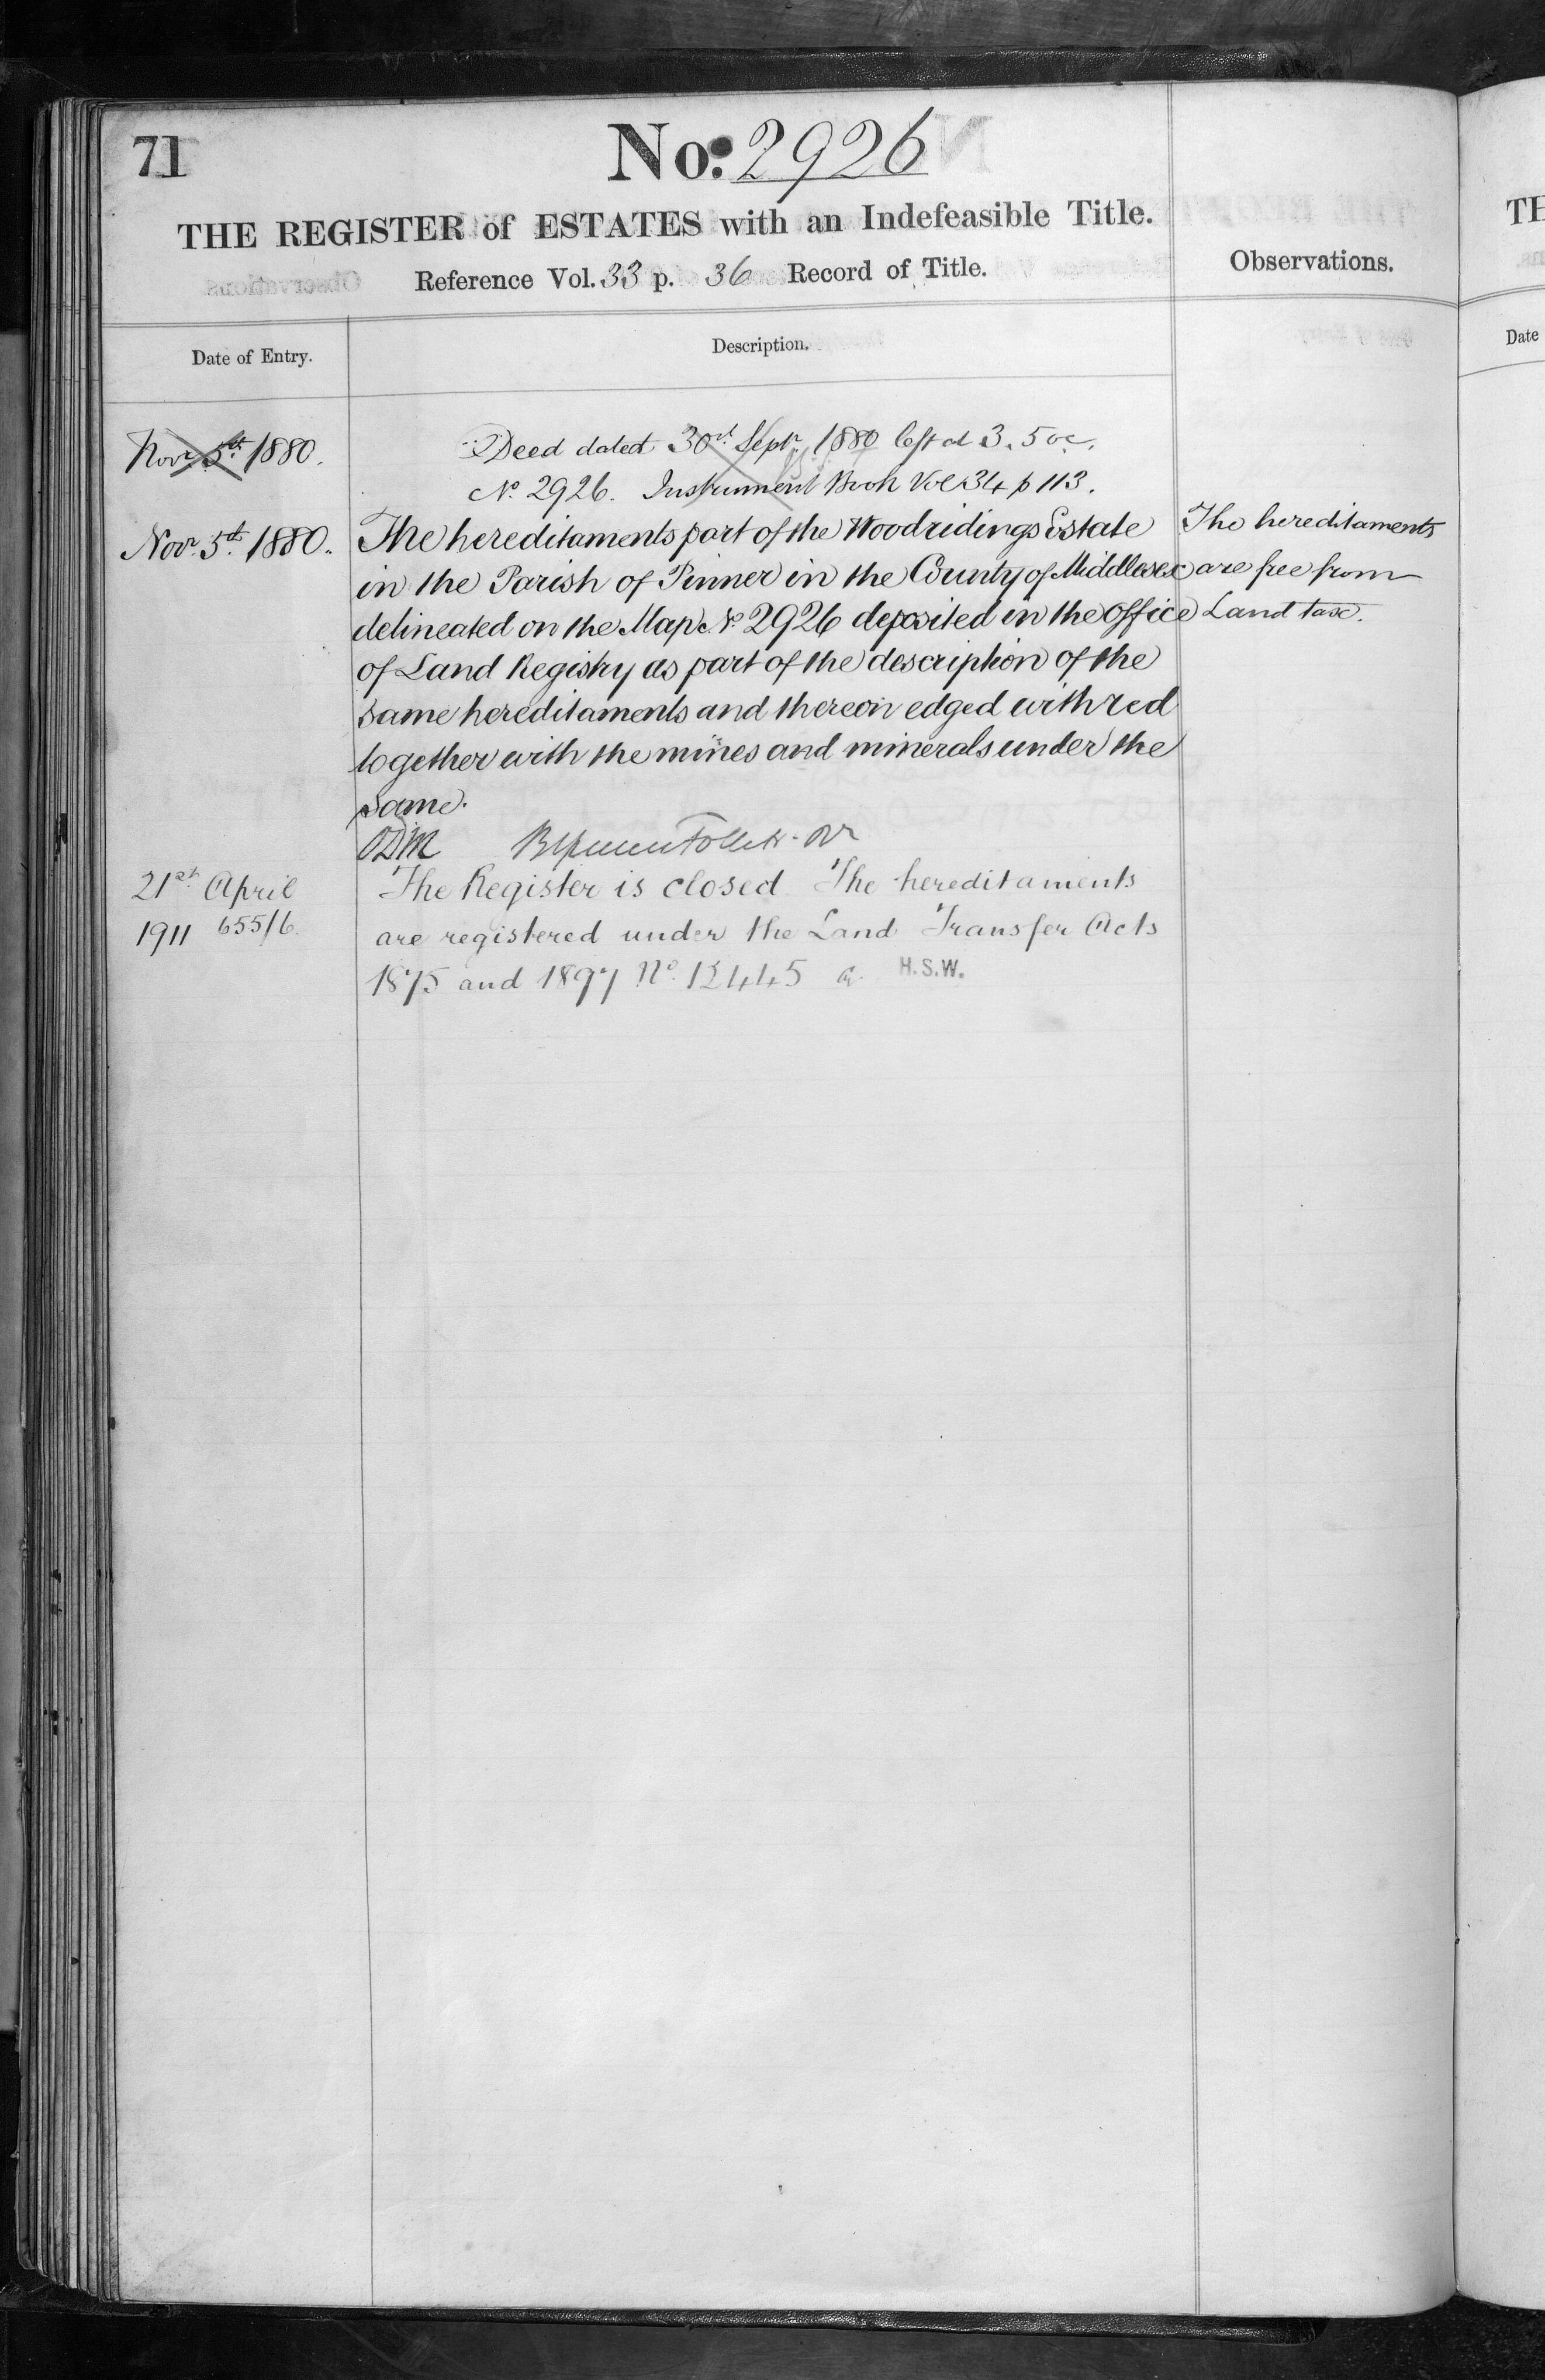 71
No: 2926
THE REGISTER of ESTATES with an Indefeasible Title.
Reference Vol. 33 p. 36 Record of Title.
Observations.
Date of Entry.
Description.
Novr. 5th 1880.
Deed dated 30th Septr. 1880 left at 3.5 oc.
No. 2926. Instrument Book Vol 34 p 113.
Novr. 5th 1880.
The hereditaments part of the Woodridings Estate
in the Parish of Pinner in the County of Middlesex
delineated on the Map No. 2926 deposited in the Office
of Land Registry as part of the description of the
same hereditaments and thereon edged with red
together with the mines and minerals under the
same.
The hereditaments
are free from
Land tax.
21st April
1911 655/6.
The Register is closed The hereditaments
are registered under the Land Transfer Acts
1875 and 1897 No. 12445
H.S.W.
TH
Date